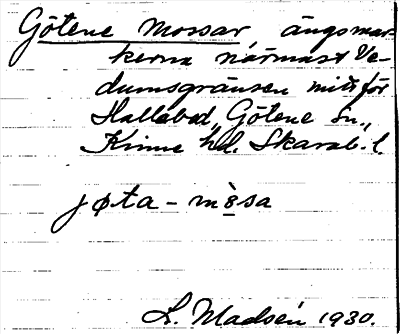 Götene Mossar, ängsmar-
kerna närmast Ve-
dumsgränsen mitt för
Hallabad, Götene sn.,
Kinne hd. Skarab. l.
jøta - mɔ̀sa
L. Madsén 1930.